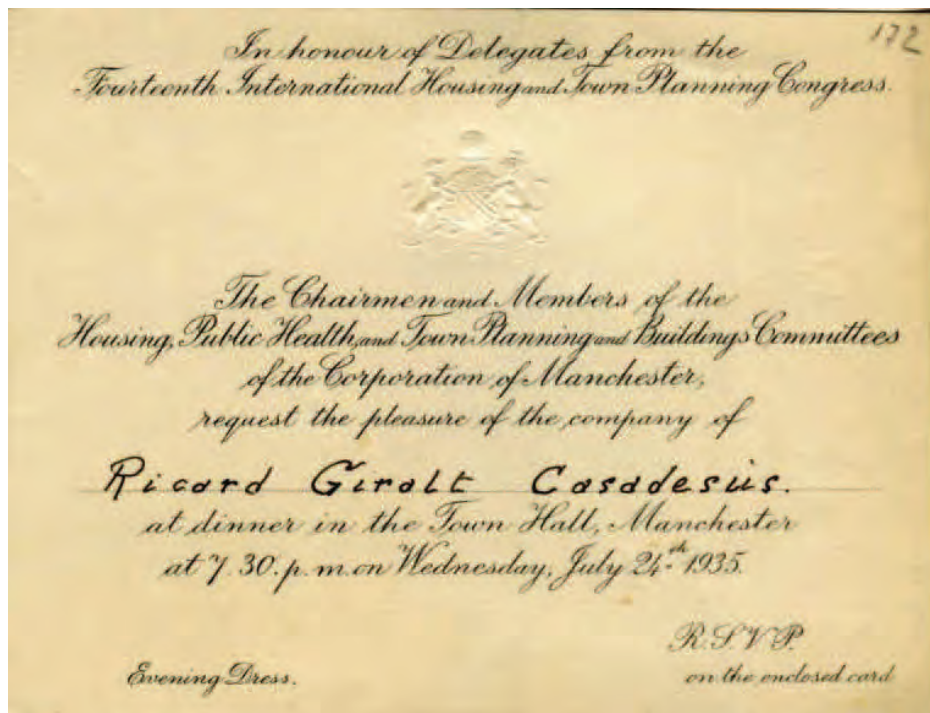 172
In honour of Delegates from the
Fourteenth International Housing and Town Planning Congress.
The Chairmen and Members of the
Housing, Public Health, and Town Planning and Buildings Committees
of the Corporation of Manchester,
request the pleasure of the company of
Ricard Giralt Casadesús.
at dinner in the Town Hall, Manchester
at 7.30.p.m. on Wednesday, July 24th 1935.
R.S.V.P.
Evening Dress.
on the enclosed card